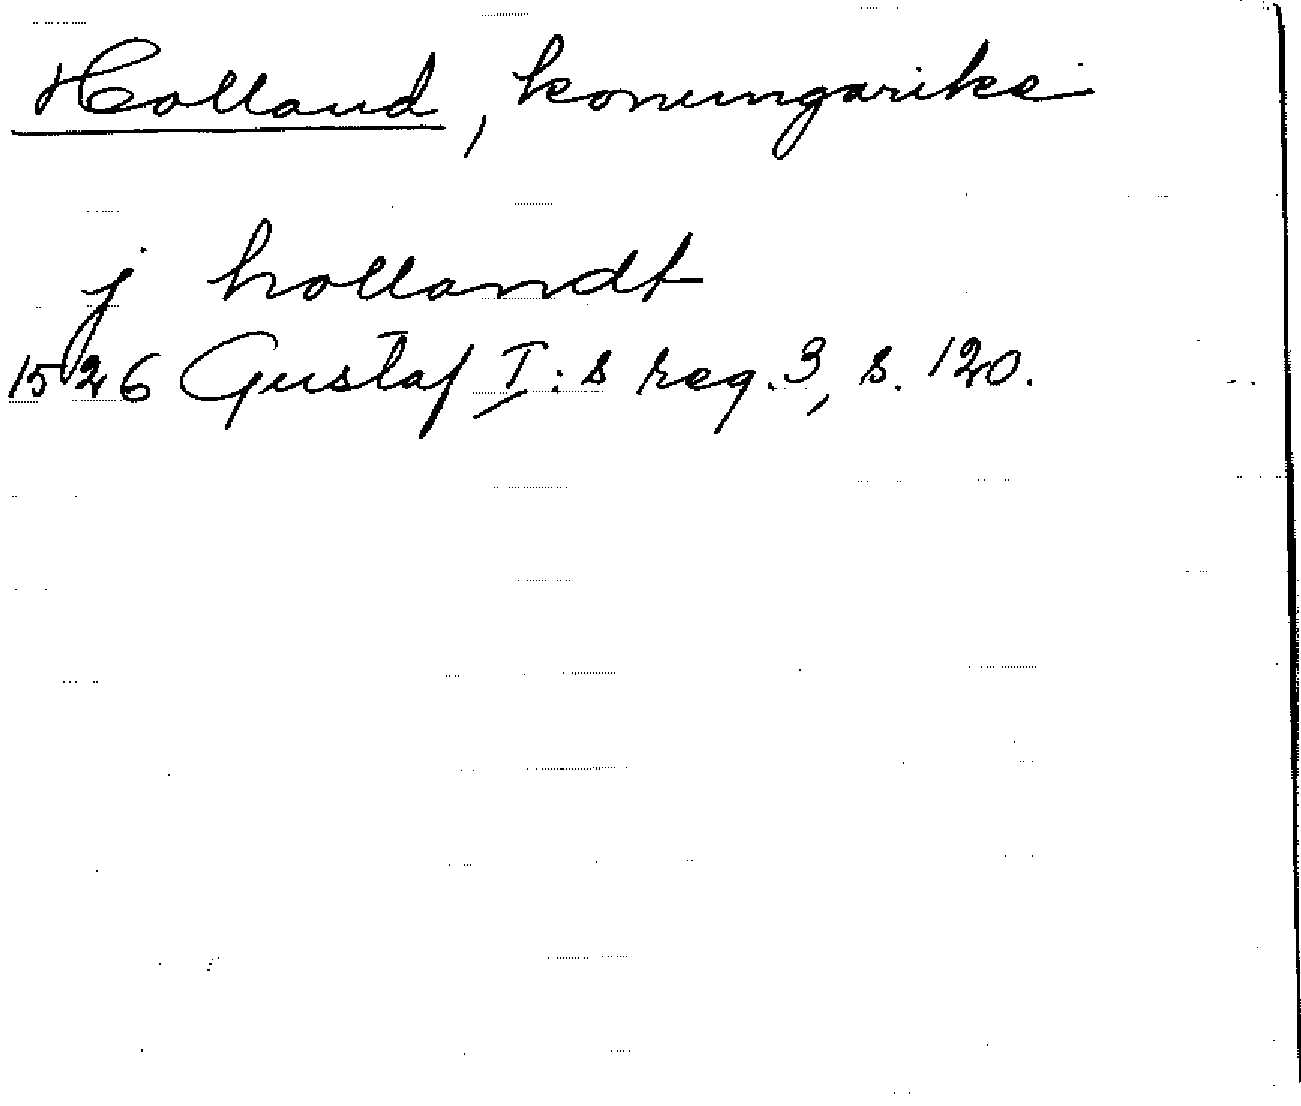 Holland, konungarike
j hollandt
1526 Gustaf I:s reg. 3, s. 120.